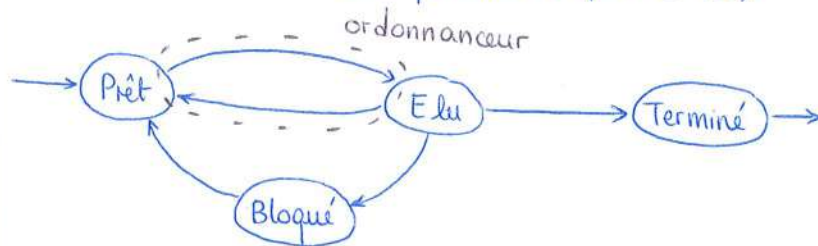 ordonnanceur
Prêt
Elu
Terminé
Bloqué